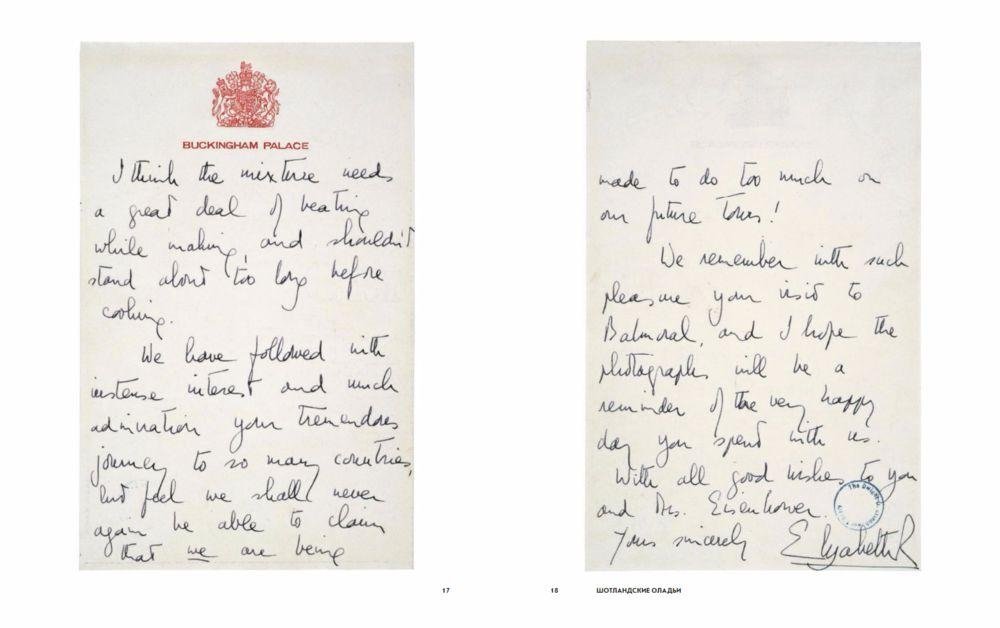 BUCKINGHAM PALACE
I think the mixture needs
a great deal of beating
while making, and shouldn't
stand about too long before
cooking.
We have followed with
intense interest and much
admiration your tremendous
journey to so many countries,
but feel we shall never
again be able to claim
that we are being
17
made to do too much on
our future tours!
We remember with such
pleasure your visit to
Balmoral, and I hope the
photographs will be a
reminder of the very happy
day you spent with us.
With all good wishes to you
and Mrs. Eisenhower.
Yours sincerely
Elizabeth R
18 ШОТЛАНДСКИЕ ОЛАДЬИ